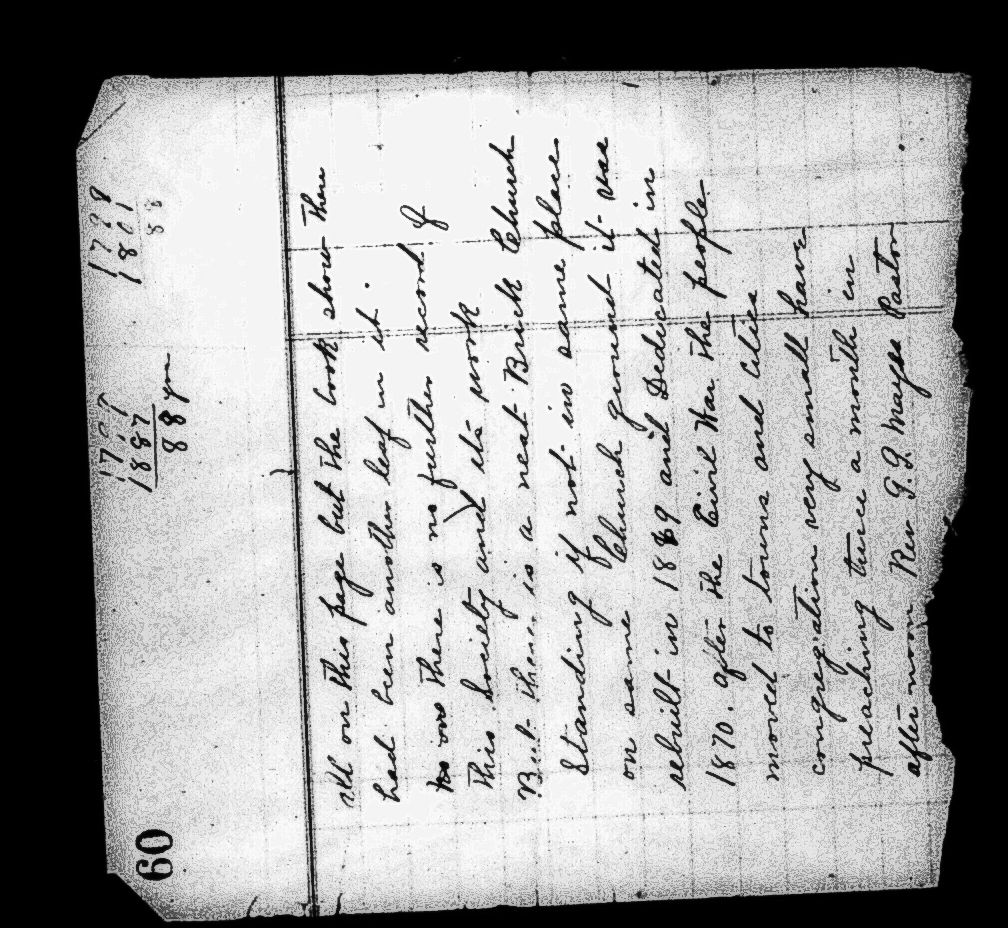 60
1887
88 yr
1801
88
all on this page but the book show there
had been another leaf in it.
there is no further record of
This Society and it's work
But there is a neat Brick Church
Standing if not in same place
on same Church ground it was
rebuilt in 1869 and Dedicated in
1870. after the Civil War the people
moved to towns and cities
congregation very small have
preaching twice a month in
after noon Rev G.G. Mayes Pastor